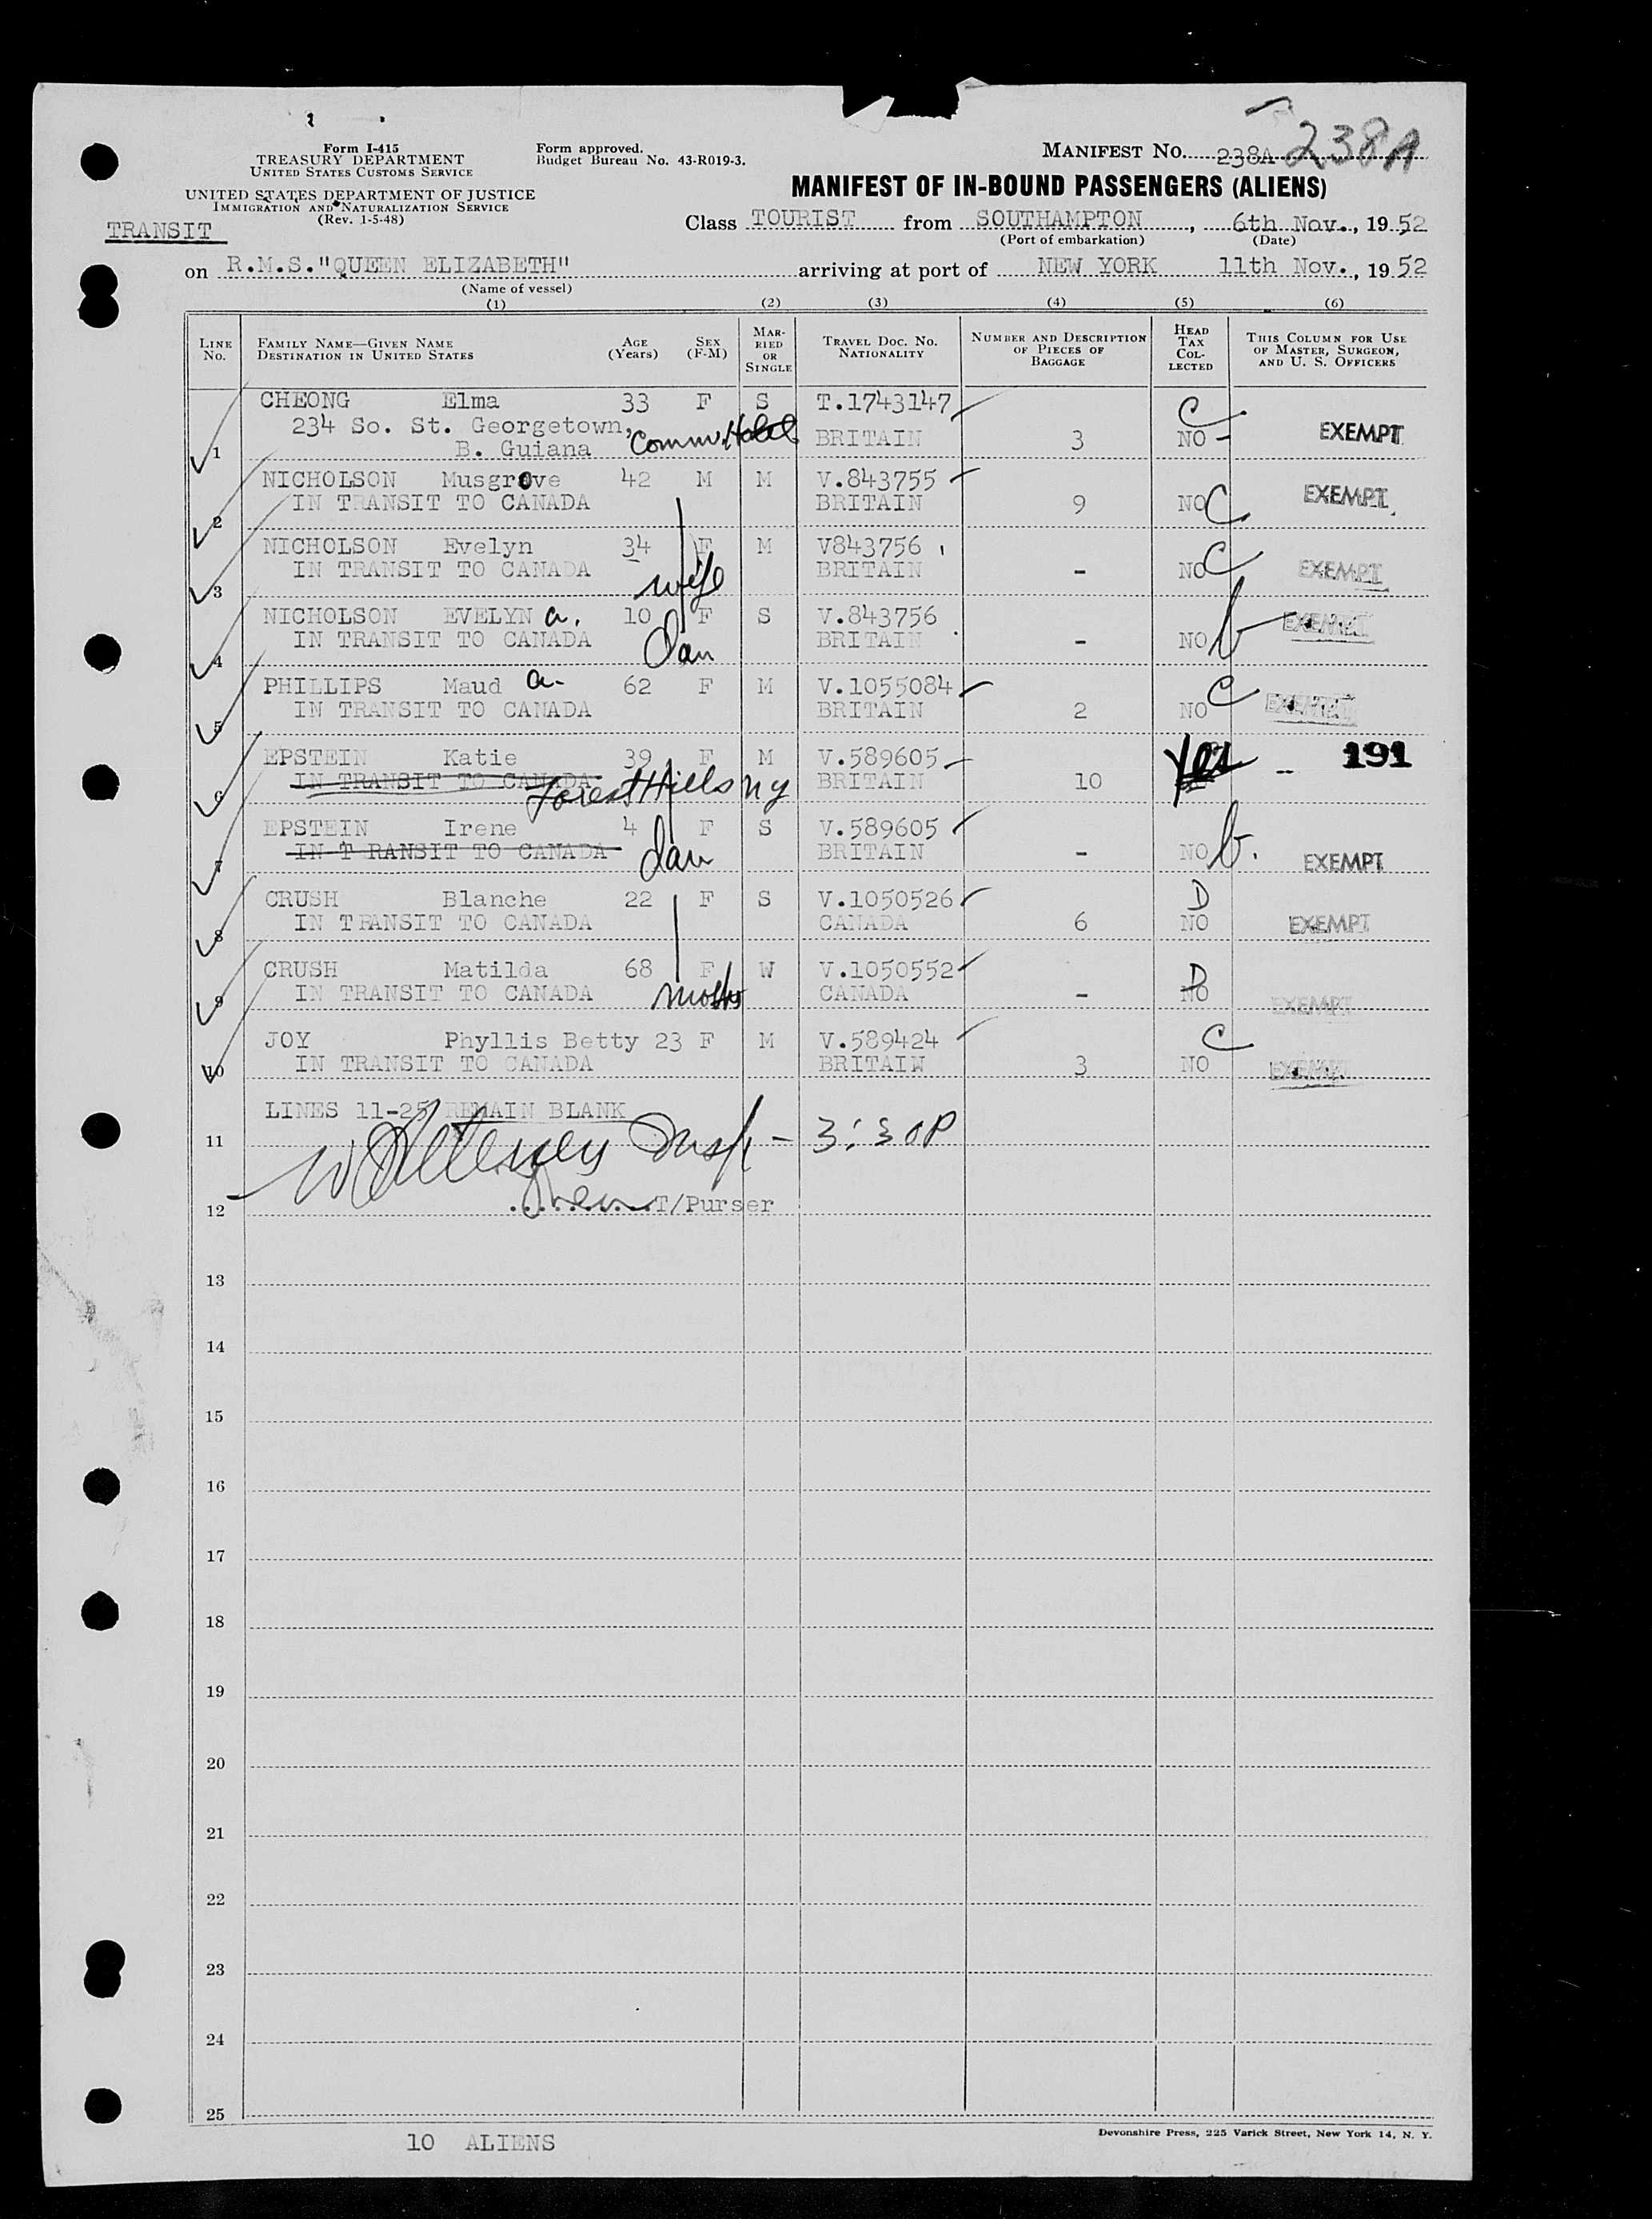 Form I-415
TREASURY DEPARTMENT
UNITED STATES CUSTOMS SERVICE
UNITED STATES DEPARTMENT OF JUSTICE
IMMIGRATION AND NATURALIZATION SERVICE
(Rev. 1-5-48)
TRANSIT
Form approved.
Budget Bureau No. 43-R019-3.
MANIFEST NO. 238A 238A
MANIFEST OF IN-BOUND PASSENGERS (ALIENS)
Class TOURIST from SOUTHAMPTON, 6th Nov., 1952
(Port of embarkation) (Date)
on R.M.S."QUEEN ELIZABETH" arriving at port of NEW YORK 11th Nov., 1952
(Name of vessel)
(1) (2) (3) (4) (5) (6)
LINE No. FAMILY NAME—GIVEN NAME DESTINATION IN UNITED STATES AGE (Years) SEX (F-M) MARRIED OR SINGLE TRAVEL DOC. NO. NATIONALITY NUMBER AND DESCRIPTION OF PIECES OF BAGGAGE HEAD TAX COLLECTED THIS COLUMN FOR USE OF MASTER, SURGEON, AND U. S. OFFICERS
CHEONG Elma 33 F S T.1743147 C
234 So. St. Georgetown, BRITAIN 3 NO - EXEMPT
1 B. Guiana Comm. Hotel
NICHOLSON Musgrove 42 M M V.843755
2 IN TRANSIT TO CANADA BRITAIN 9 NO C EXEMPT
NICHOLSON Evelyn 34 F M V843756
3 IN TRANSIT TO CANADA wife BRITAIN - NO C EXEMPT
NICHOLSON EVELYN a. 10 F S V.843756
4 IN TRANSIT TO CANADA dau BRITAIN - NO b EXEMPT
PHILLIPS Maud a. 62 F M V.1055084
5 IN TRANSIT TO CANADA BRITAIN 2 NO C EXEMPT
EPSTEIN Katie 39 F M V.589605 yes - 191
6 IN TRANSIT TO CANADA Forest Hills ny BRITAIN 10
EPSTEIN Irene 4 F S V.589605
7 IN T RANSIT TO CANADA dau BRITAIN - NO b. EXEMPT
CRUSH Blanche 22 F S V.1050526 D
8 IN TRANSIT TO CANADA CANADA 6 NO EXEMPT
CRUSH Matilda 68 F W V.1050552 D
9 IN TRANSIT TO CANADA mother CANADA - NO EXEMPT
JOY Phyllis Betty 23 F M V.589424 C
10 IN TRANSIT TO CANADA BRITAIN 3 NO EXEMPT
LINES 11-25 REMAIN BLANK
11 Insp - 3:30P
12 T/Purser
13
14
15
16
17
18
19
20
21
22
23
24
25
10 ALIENS
Devonshire Press, 225 Varick Street, New York 14, N. Y.